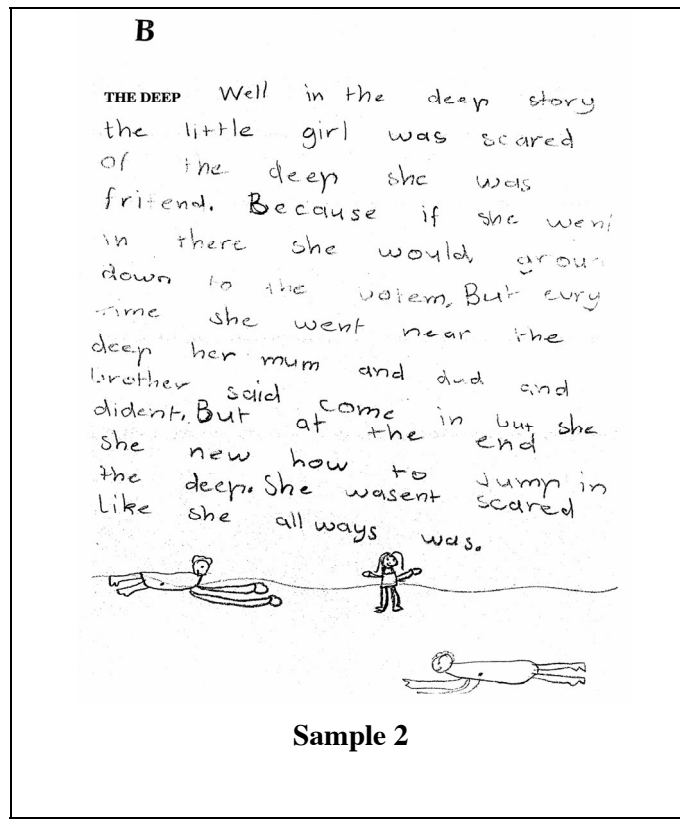 B
THE DEEP Well in the deep story
the little girl was scared
of the deep she was
fritend. Because if she went
in there she would, groun
down to the votem, But evry
time she went near the
deep her mum and dad and
brother said come in but she
dident. But at the end
she new how to jump in
the deep. She wasent scared
like she all ways was.
Sample 2